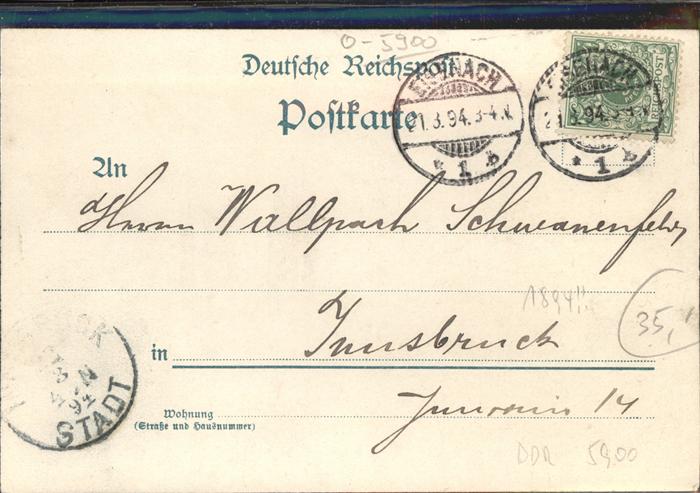 O-5900
Deutsche Reichspost
Postkarte
EISENACH
21.3.94.3-4.N.
* 1 b
EISENACH
* 1 b
REICHSPOST
An
Herrn Wallpach Schwanenfeld
1894!!
35,-
in Innsbruck
Wohnung
(Straße und Hausnummer)
14
STADT
94
DDR 5900